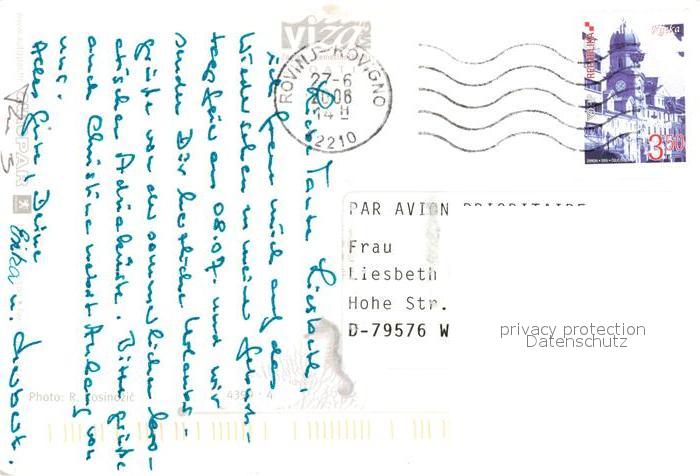 Liebe Tante Liesbeth,
ich freue mich auf das
Wiedersehen zu meiner Geburts-
tagsfeier am 08.07. und wir
senden Dir herzliche Urlaubs-
grüße von der sommerlichen kro-
atischen Adriaküste. Bitte grüße
auch Christine nebst Anhang von
uns.
Alles Gute! Deine
Erika u. Herbert.
viza
ROVINJ-ROVIGNO
27-6
2006
14 H
52210
REPUBLIKA
Rijeka
3,50
PAR AVION PRIORITAIRE
Frau
Liesbeth
Hohe Str.
D-79576 W
privacy protection
Datenschutz
Photo: R. Kosinožić
4399 · 4